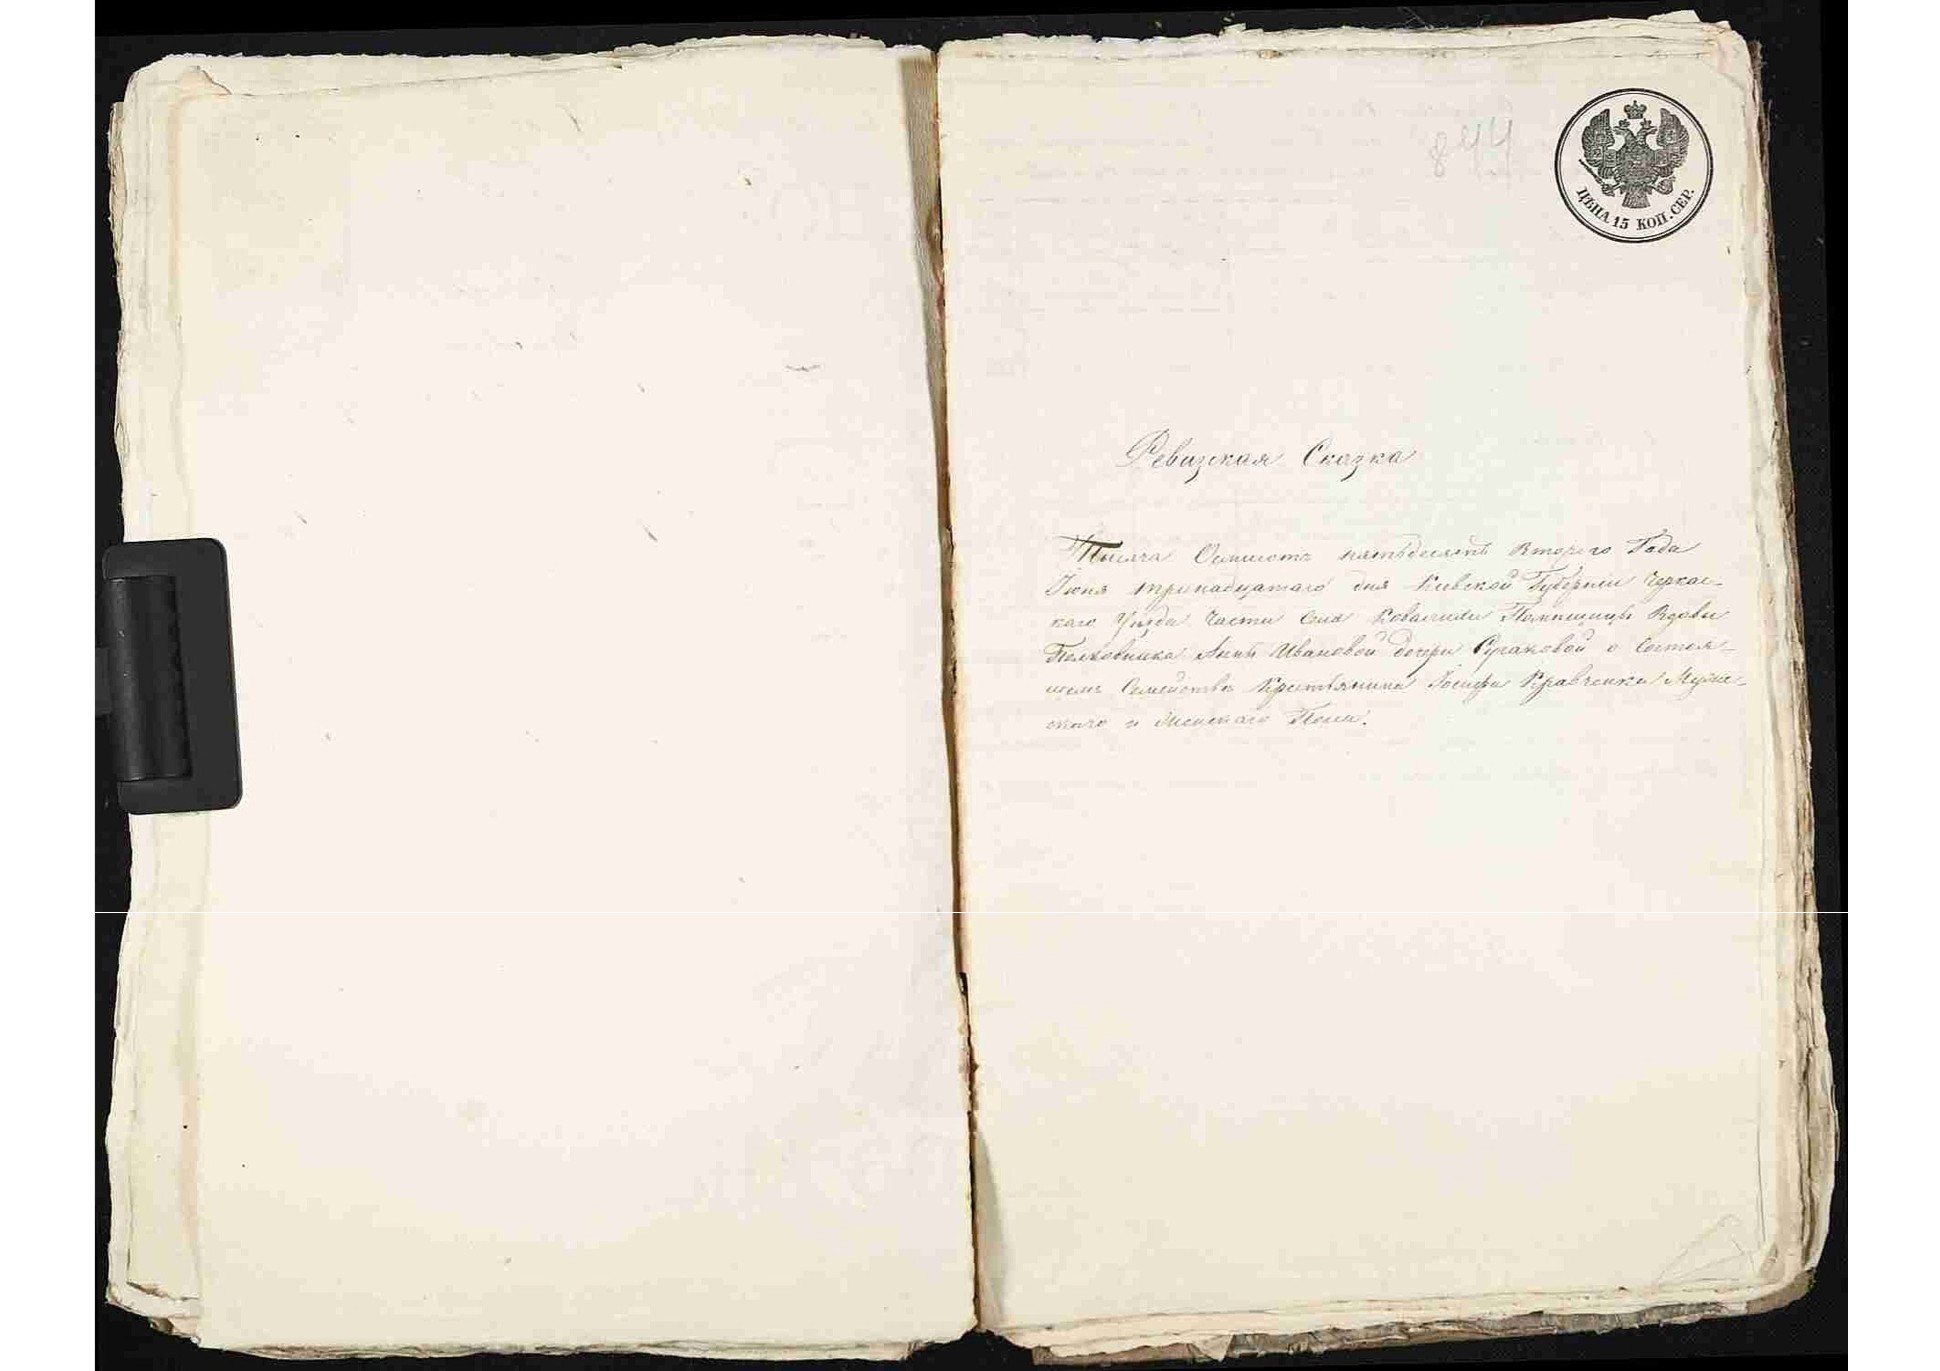 844
ЦѢНА 15 КОП. СЕР.
Ревизская Сказка
Тысяча Осмисотъ пятьдесятъ Втораго Года
Іюня тринадцатаго дня Кіевской Губерніи Черкас-
каго Уѣзда Части Села Помѣщицы Вдовы
Полковника Анны Ивановой дочери о Состоя-
щемъ Семействѣ Крестьянина Іосифа Кравченка Муже-
скаго и Женскаго Пола.